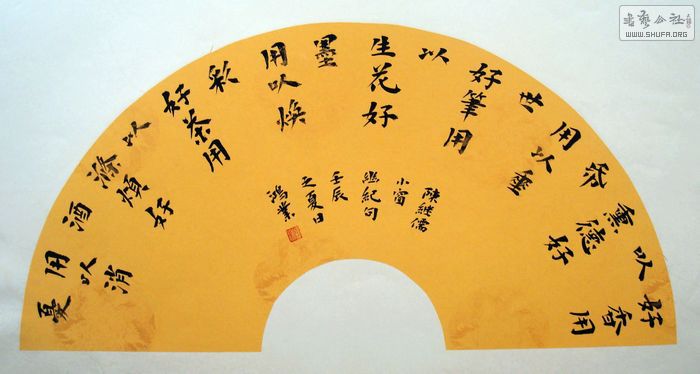 好香用
以
熏德好
帋
用以垂
世
好筆用
以
生花好
墨
用以煥
彩
好茶用
以
滌煩好
酒
用以消
憂
陳継儒
小窗
紀句
壬辰
之夏日
鴻業
WWW.SHUFA.ORG